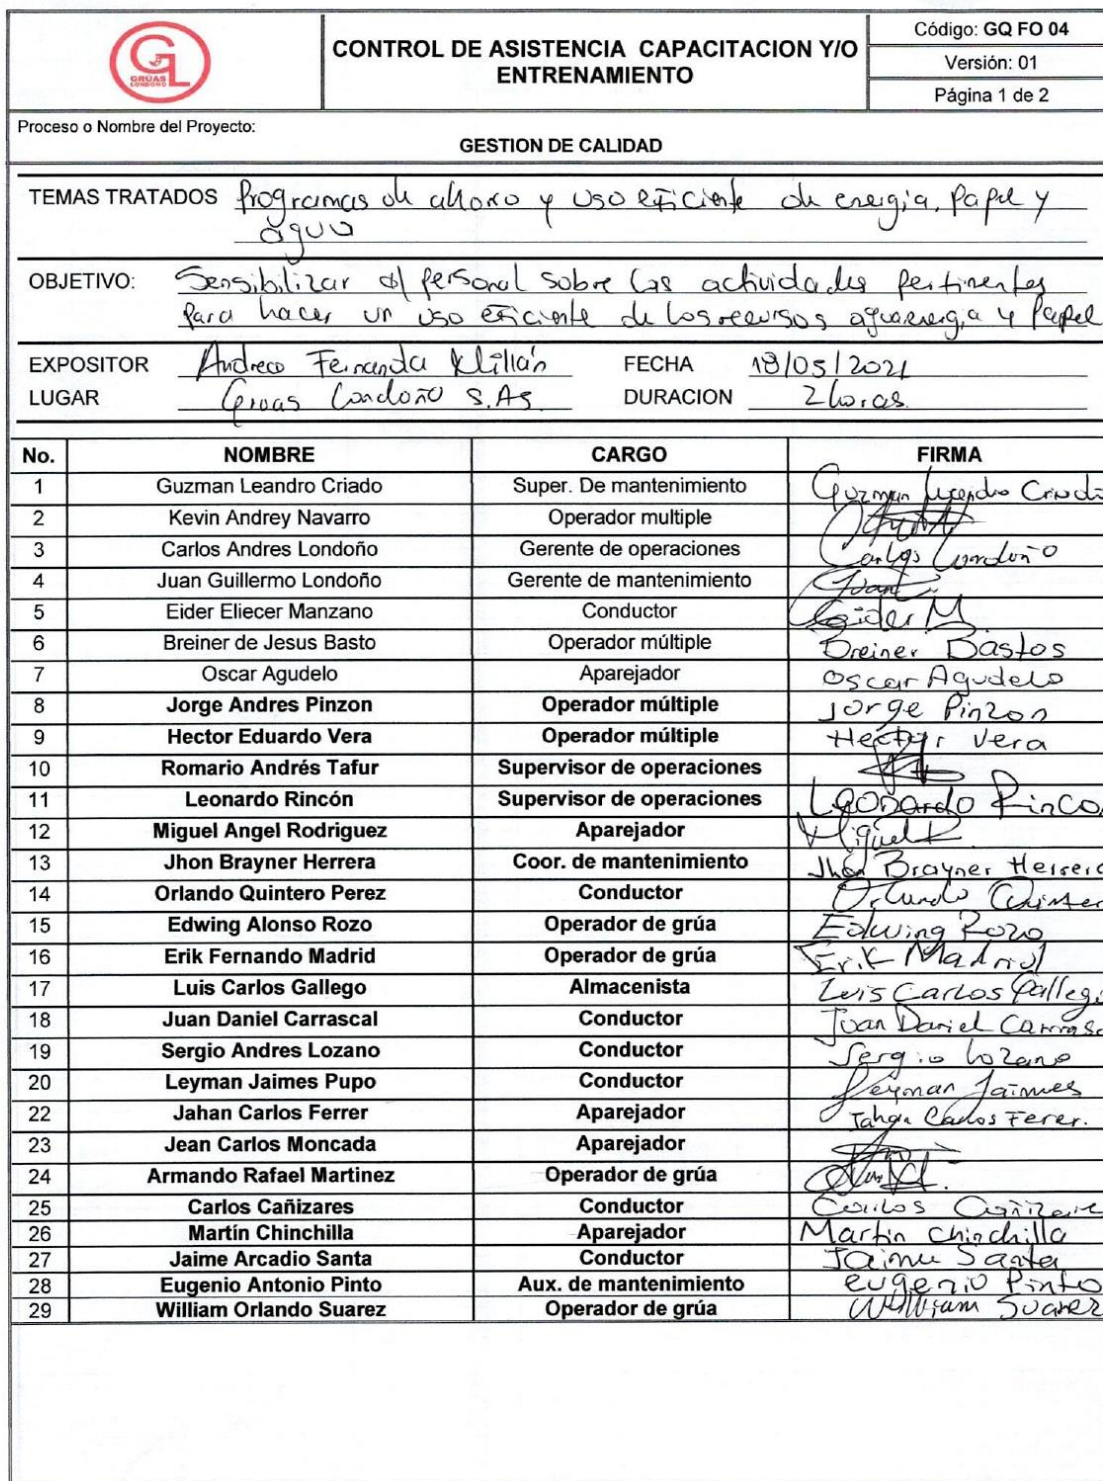 GL
GRUAS
LONDOÑO
CONTROL DE ASISTENCIA CAPACITACION Y/O
ENTRENAMIENTO
Código: GQ FO 04
Versión: 01
Página 1 de 2
Proceso o Nombre del Proyecto:
GESTION DE CALIDAD
TEMAS TRATADOS Programas de ahorro y uso eficiente de energia, Papel y
agua
OBJETIVO: Sensibilizar al personal sobre las actividades pertinentes
para hacer un uso eficiente de los recursos agua energia y Papel
EXPOSITOR Andrea Fernanda Millán FECHA 18/05/2021
LUGAR Gruas Londoño S.AS. DURACION 2 horas.
No. NOMBRE CARGO FIRMA
1 Guzman Leandro Criado Super. De mantenimiento Guzman Leandro Criado
2 Kevin Andrey Navarro Operador multiple
3 Carlos Andres Londoño Gerente de operaciones Carlos Londoño
4 Juan Guillermo Londoño Gerente de mantenimiento Juan
5 Eider Eliecer Manzano Conductor Eider M
6 Breiner de Jesus Basto Operador múltiple Breiner Bastos
7 Oscar Agudelo Aparejador Oscar Agudelo
8 Jorge Andres Pinzon Operador múltiple Jorge Pinzon
9 Hector Eduardo Vera Operador múltiple Hector Vera
10 Romario Andrés Tafur Supervisor de operaciones
11 Leonardo Rincón Supervisor de operaciones Leonardo Rincon
12 Miguel Angel Rodriguez Aparejador Miguel R
13 Jhon Brayner Herrera Coor. de mantenimiento Jhon Brayner Herrera
14 Orlando Quintero Perez Conductor Orlando Quinter
15 Edwing Alonso Rozo Operador de grúa Edwing Rozo
16 Erik Fernando Madrid Operador de grúa Erik Madrid
17 Luis Carlos Gallego Almacenista Luis Carlos Gallego
18 Juan Daniel Carrascal Conductor Juan Daniel Carrasc
19 Sergio Andres Lozano Conductor Sergio Lozano
20 Leyman Jaimes Pupo Conductor Leyman Jaimes
22 Jahan Carlos Ferrer Aparejador Jahan Carlos Ferer.
23 Jean Carlos Moncada Aparejador
24 Armando Rafael Martinez Operador de grúa
25 Carlos Cañizares Conductor Carlos Cañizare
26 Martín Chinchilla Aparejador Martin Chinchilla
27 Jaime Arcadio Santa Conductor Jaime Santa
28 Eugenio Antonio Pinto Aux. de mantenimiento eugenio Pinto
29 William Orlando Suarez Operador de grúa William Suarez